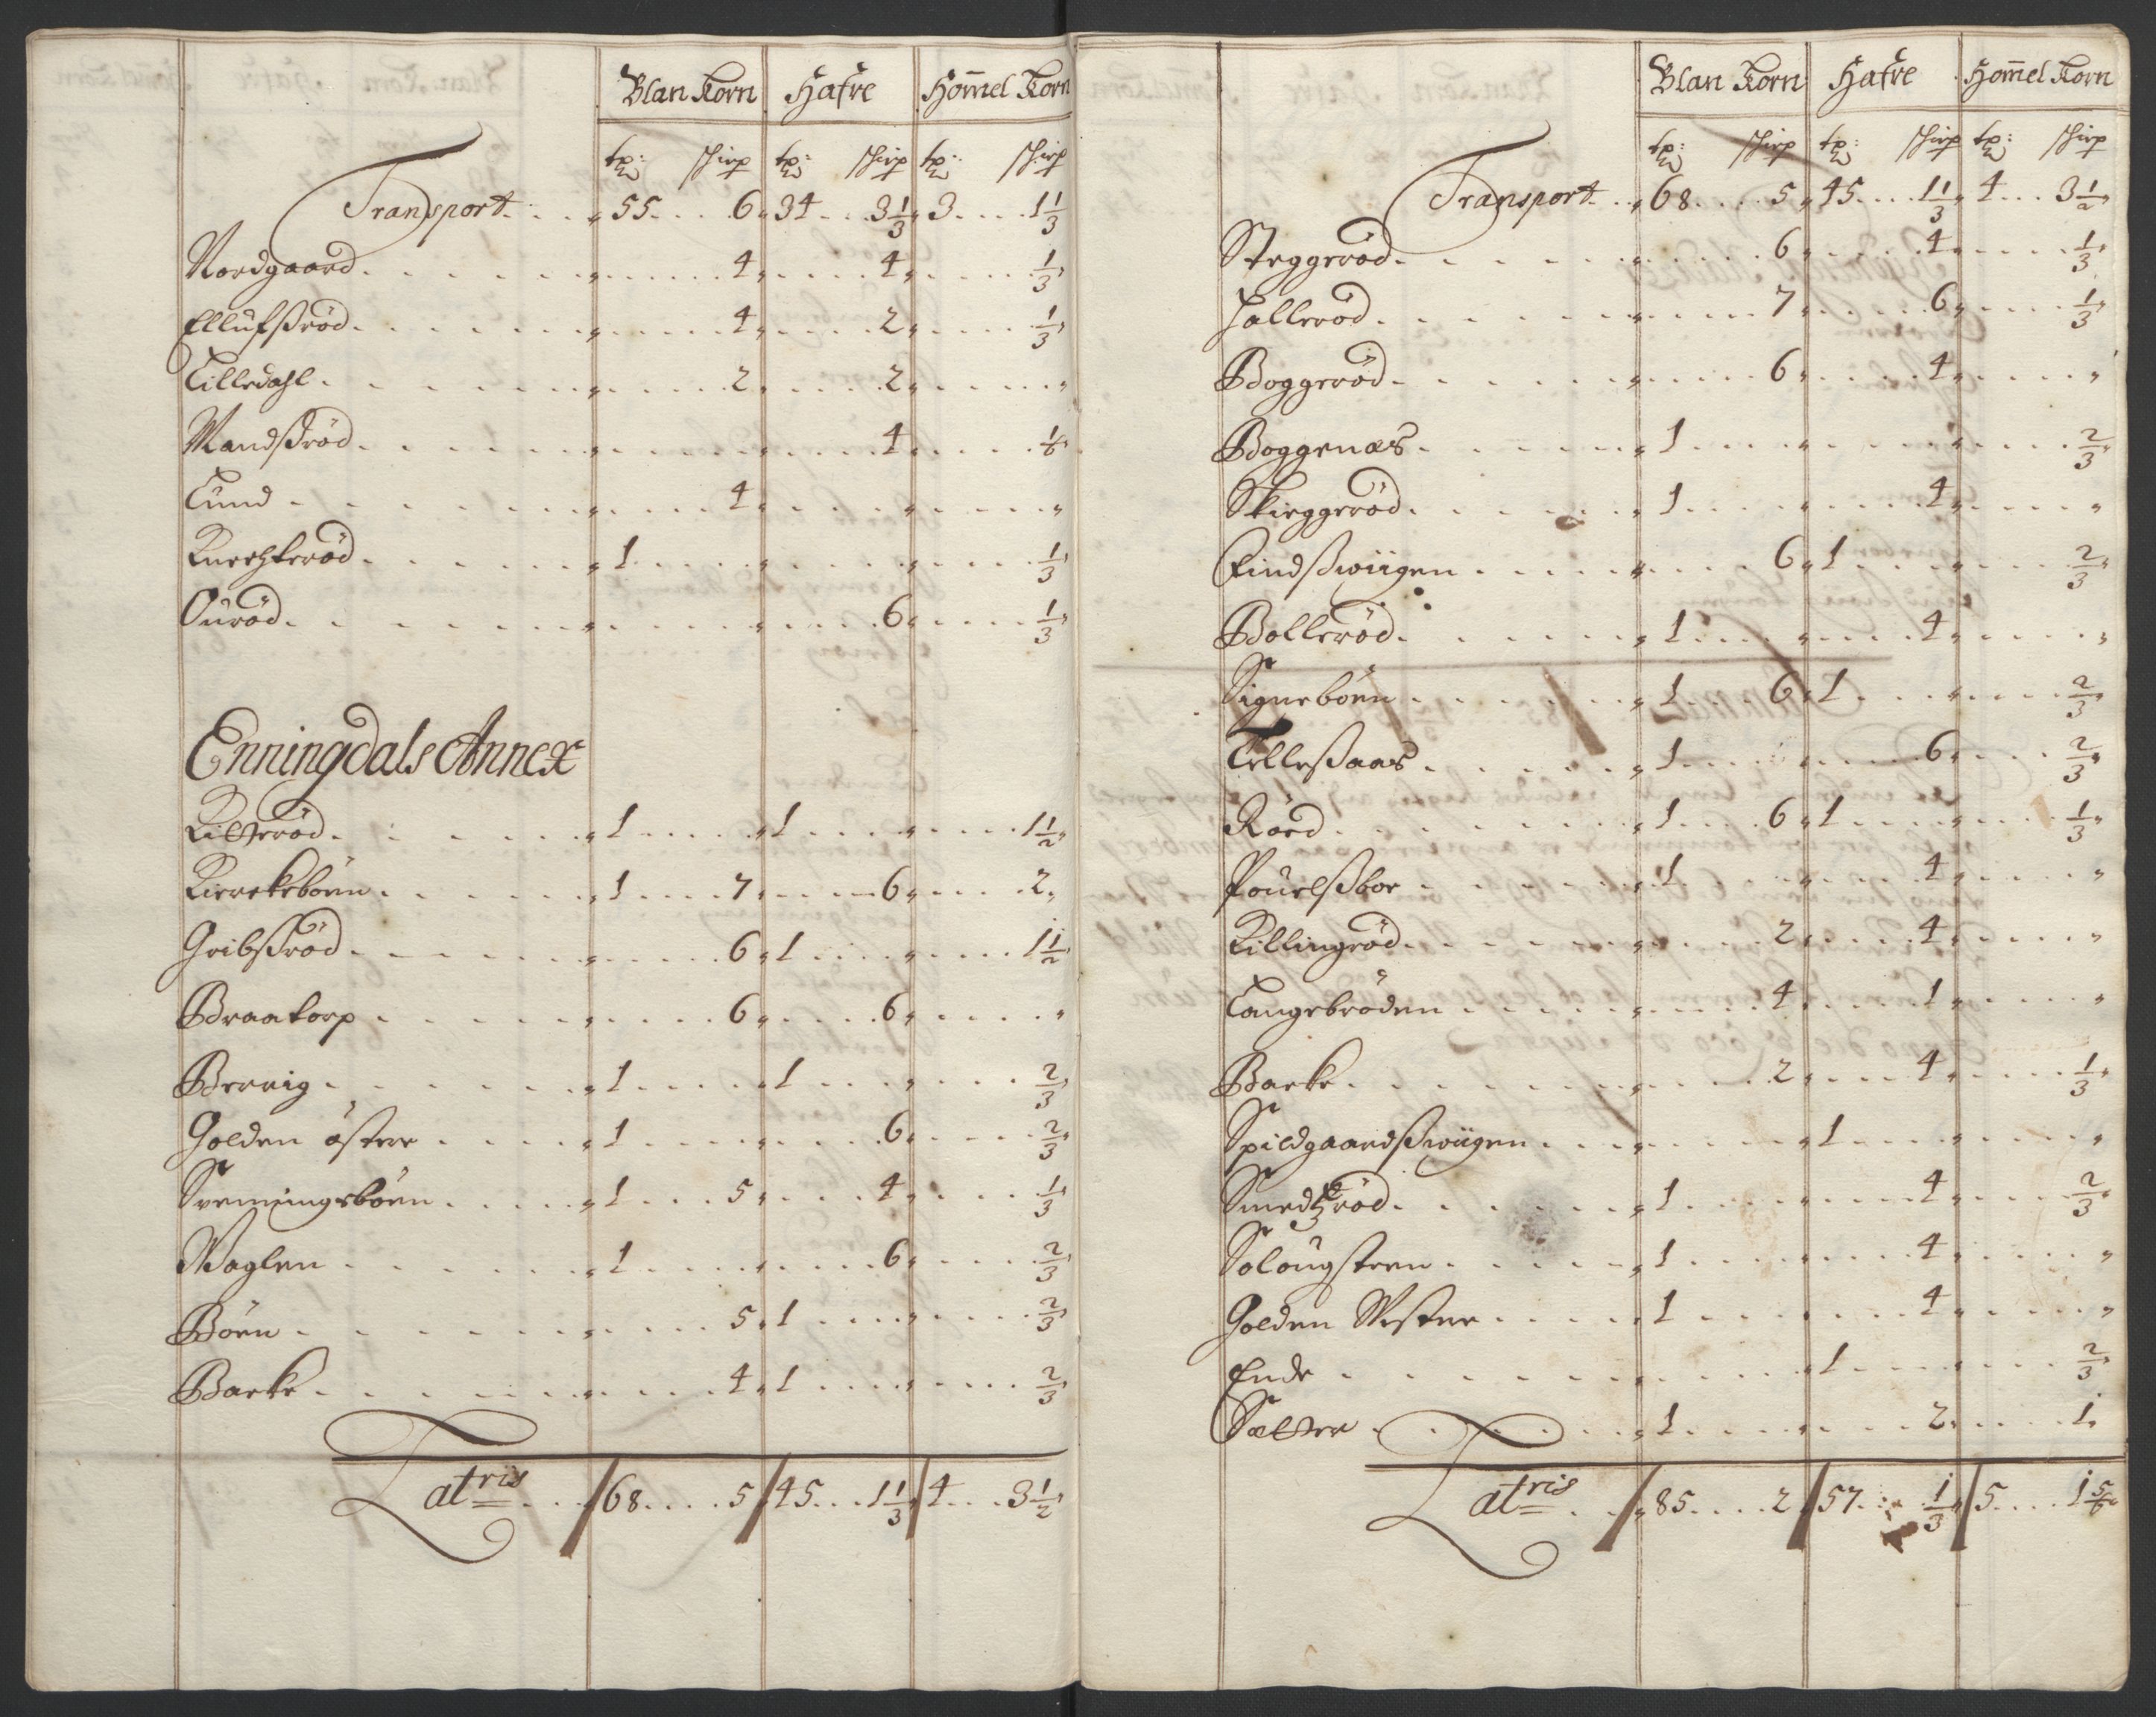 Blan Korn Hafre Hom̄el Korn
tr: schip tr: schip tr: schip
Transport . . . 55 . . . 6 34 . . 3 1/3 3 . . . 1 1/3
Nordgaard . . . 4 . . . 4 . . . 1/3
Ellufsrød . . . 4 . . . 2 . . . 1/3
Lilledahl . . . 2 . . . 2 . . . "
Mandsrød . . . 4 . . . 1/6
Lund . . . 4 . . . "
Knechterød . . . 1 . . . 1/3
Ourød . . . 6 . . . 1/3
Enningdals Annex
Kitterød . . . 1 . . . 1 . . . 1 1/2
Kirckebøen . . . 1 . . . 7 . . . 6 . . . 2
Gribsrød . . . 6 1 . . . 1 1/2
Braatorp . . . 6 . . . 6 . . . "
Berrig . . . 1 . . . 1 . . . 2/3
Holden østere . . . 1 . . . 6 . . . 2/3
Svenningsbøen . . . 1 . . . 5 . . . 4 . . . 1/3
Waglen . . . 1 . . . 6 . . . 2/3
Bøen . . . 5 1 . . . 2/3
Backe . . . 4 1 . . . 2/3
Latris . . . 68 . . . 5 45 . . . 1 1/3 4 . . . 3 1/2
Blan Korn Hafre Hom̄el Korn
tr: schip tr: schip tr: schip
Transport . . . 68 . . . 5 45 . . . 1 1/3 4 . . . 3 1/2
Steggerød . . . 6 . . . 4 . . . 1/3
Hallerød . . . 7 . . . 6 . . . 1/3
Boggerød . . . 6 . . . 4 . . . "
Boggenæs . . . 1 . . . 2/3
Skieggerød . . . 1 . . . 4 . . . "
Findswiigen . . . 6 1 . . . 2/3
Bollerød . . . 1 . . . 4 . . . "
Signebøen . . . 1 . . . 6 1 . . . 2/3
Tellesaas . . . 1 . . . 6 . . . 2/3
Rød . . . 1 . . . 6 1 . . . 1/3
Pouelsboe . . . 1 . . . 4 . . . "
Killingrød . . . 2 . . . 4 . . . "
Langebrøden . . . 4 . . . 1 . . . "
Backe . . . 2 . . . 4 . . . 1/3
Spildgaardswiigen . . . 1 . . . "
Smedzrød . . . 1 . . . 4 . . . 2/3
Solougsteen . . . 1 . . . 4 . . . "
Holden Westere . . . 1 . . . 4 . . . "
Ende . . . 1 . . . 2/3
Sættre . . . 1 . . . 2 . . . 1
Latris . . . 85 . . . 2 57 . . . 1/3 5 . . . 1 5/6